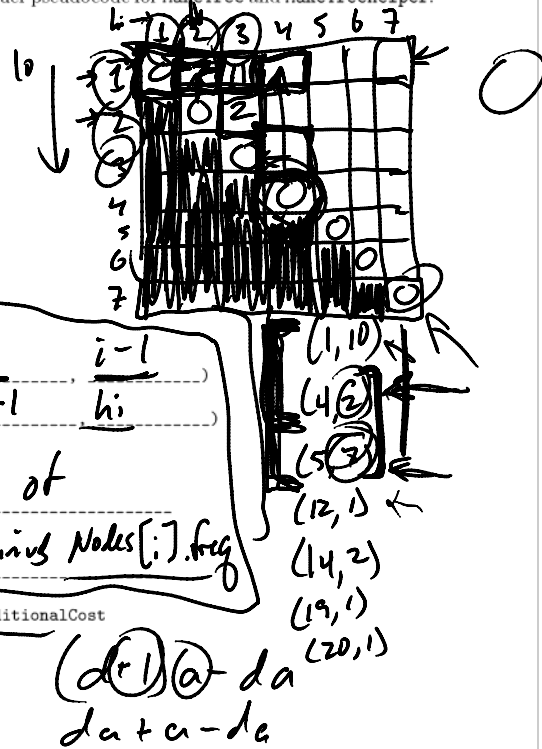 pseudocode for MakeTree and MakeTreeHelper.
hi → 1 2 3 4 5 6 7
lo
1 0
2 0 2
3 0
4 0
5 0
6 0
7 0
, i-1 )
-1 , hi )
of
Nodes[i].freq
ditionalCost
(1, 10)
(4, 2)
(5, 7)
(12, 1)
(14, 2)
(19, 1)
(20, 1)
(d+1)a - da
da + a - da